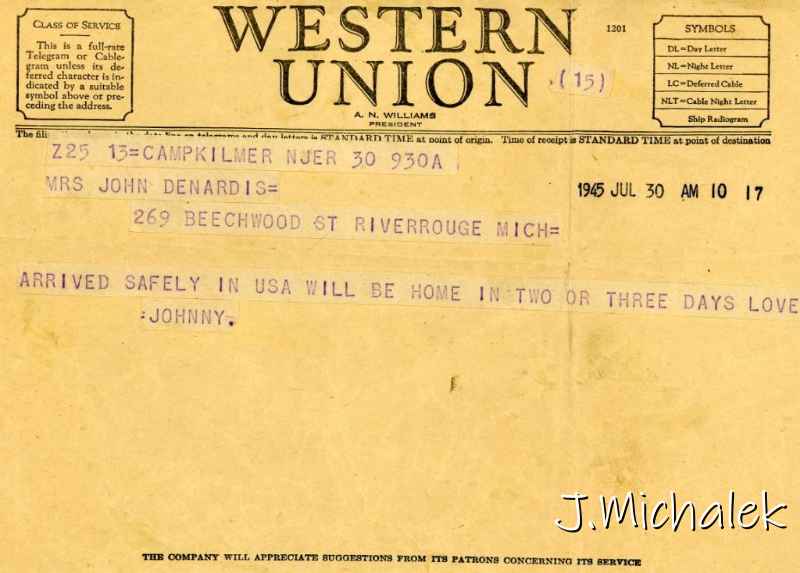 CLASS OF SERVICE
This is a full-rate
Telegram or Cable-
gram unless its de-
ferred character is in-
dicated by a suitable
symbol above or pre-
ceding the address.
WESTERN
UNION
(15)
A. N. WILLIAMS
PRESIDENT
1201
SYMBOLS
DL=Day Letter
NL=Night Letter
LC=Deferred Cable
NLT=Cable Night Letter
Ship Radiogram
The date line on telegrams and day letters is STANDARD TIME at point of origin. Time of receipt is STANDARD TIME at point of destination
Z25 13=CAMPKILMER NJER 30 930A
MRS JOHN DENARDIS=
1945 JUL 30 AM 10 17
269 BEECHWOOD ST RIVERROUGE MICH=
ARRIVED SAFELY IN USA WILL BE HOME IN TWO OR THREE DAYS LOVE
=JOHNNY.
J.Michalek
THE COMPANY WILL APPRECIATE SUGGESTIONS FROM ITS PATRONS CONCERNING ITS SERVICE